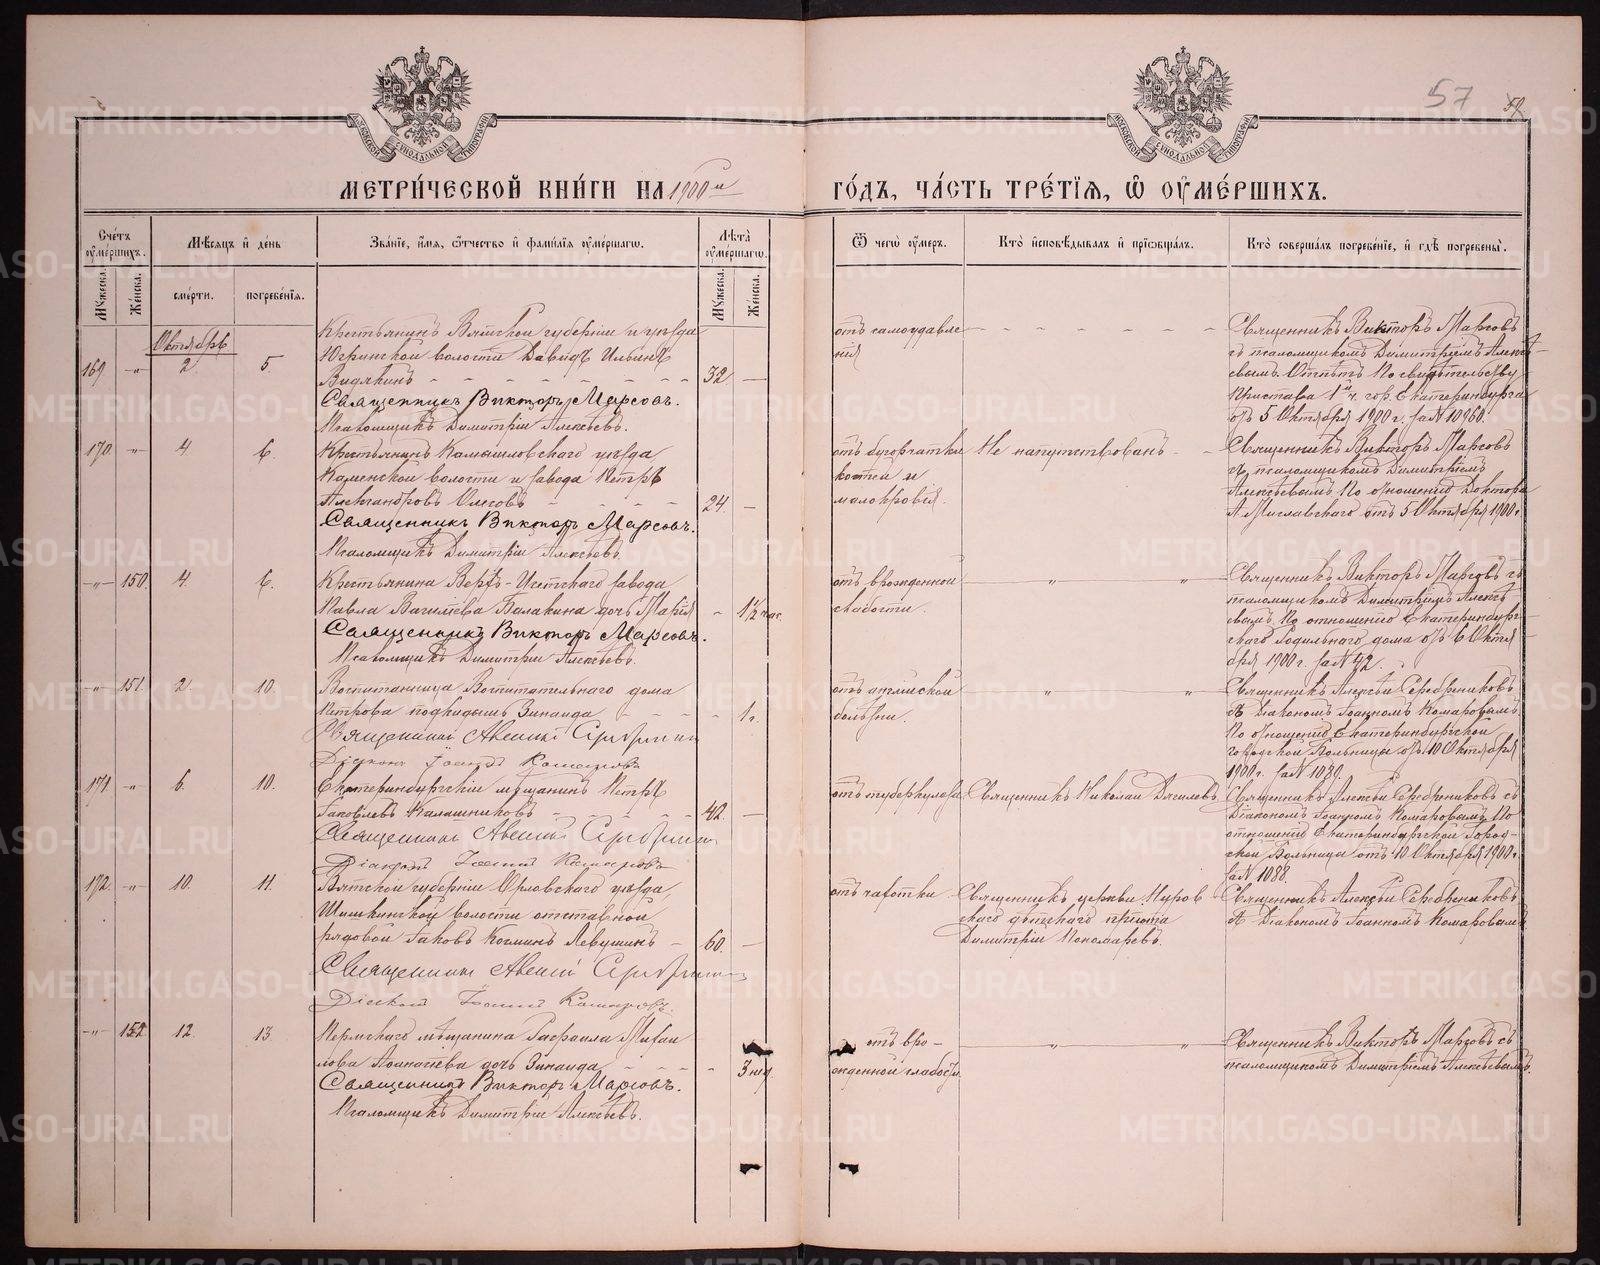 57
МЕТРИ́ЧЕСКОЙ КНИ́ГИ НА 1900й ГО́ДЪ, ЧА́СТЬ ТРЕ́ТІЯ, Ѡ ОУ҆МЕ́РШИХЪ.
МОСКОВСКОЙ СѴНОДАЛЬНОЙ ТИПОГРАФІИ
МОСКОВСКОЙ СѴНОДАЛЬНОЙ ТИПОГРАФІИ
Счетъ оумершихъ.
Мѣсяцъ и день
Званіе, имя, отчество и фамилія оумершагѡ.
Лѣта оумершагѡ.
Ѿ чегѡ оумеръ.
Кто исповѣдывалъ и пріѡбщалъ.
Кто совершалъ погребеніе, и гдѣ погребены.
Мужеска.
Женска.
смерти.
погребенія.
Мужеска.
Женска.
Октябрь
169 -"- 2. 5.
Крестьянинъ Вятской губерніи и уѣзда
Югринской волости Давидъ Ильинъ
Видякинъ 32 —
Священникъ Викторъ Марсовъ.
Псаломщикъ Димитрій Алексѣевъ.
отъ самоудавле
нія
Священникъ Викторъ Марсовъ
съ псаломщикомъ Димитріемъ Алексѣ-
евымъ. Отпѣтъ по свидѣтельству
Пристава 1й ч. гор. Екатеринбурга
отъ 5 Октября 1900 г. за № 10960.
170 -"- 4 6.
Крестьянинъ Камышловскаго уѣзда
Каменской волости и завода Петръ
Александровъ 24. —
Священникъ Викторъ Марсовъ.
Псаломщикъ Димитрій Алексѣевъ.
отъ бугорчатки
костей и
малокровія.
Не напутствованъ
Священникъ Викторъ Марсовъ
съ псаломщикомъ Димитріемъ
Алексѣевымъ по отношенію Доктора
А. Миславскаго отъ 5 Октября 1900 г.
-"- 150. 4. 6.
Крестьянина Верхъ-Исетскаго завода
Павла Васильева Балакина дочь Марія - 1½ час.
Священникъ Викторъ Марсовъ.
Псаломщикъ Димитрій Алексѣевъ.
отъ врожденной
слабости.
Священникъ Викторъ Марсовъ съ
псаломщикомъ Димитріемъ Алексѣ-
евымъ по отношенію Екатеринбург-
скаго Родильнаго дома отъ 6 Октя
бря 1900 г. за № 42.
-"- 151. 2. 10.
Воспитанница Воспитательнаго дома
Петрова подкидышъ Зинаида 1 г.
Священникъ Алексій Серебрениковъ
Діаконъ Іоаннъ Комаровъ
отъ дѣтской
болѣзни.
Священникъ Алексѣй Серебрениковъ
съ Діакономъ Іоанномъ Комаровымъ
по отношенію Екатеринбургской
городской больницы отъ 10 Октября
1900 г. за № 1090.
171. -"- 6. 10.
Екатеринбургскій мѣщанинъ Петръ
Іаковлевъ Калашниковъ 42. —
Священникъ Алексій Серебрениковъ
Діаконъ Іоаннъ Комаровъ
отъ туберкулеза
Священникъ Николай Дягилевъ
Священникъ Алексѣй Серебрениковъ съ
Діакономъ Іоанномъ Комаровымъ по
отношенію Екатеринбургской Город-
ской больницы отъ 10 Октября 1900 г.
за № 1088.
172. -"- 10. 11.
Вятской губерніи Орловскаго уѣзда,
Шишкинской волости отставной
рядовой Іаковъ Козминъ Левушинъ - 60. —
Священникъ Алексій Серебрениковъ
Діаконъ Іоаннъ Комаровъ.
отъ чахотки
Священникъ церкви Нуров
скаго дѣтскаго пріюта
Димитрій Пономаревъ.
Священникъ Алексѣй Серебрениковъ
съ Діакономъ Іоанномъ Комаровымъ
-"- 152. 12. 13.
Пермскаго мѣщанина Гавріила Михаи
лова дочь Зинаида 3 нед.
Священникъ Викторъ Марсовъ.
Псаломщикъ Димитрій Алексѣевъ.
отъ вро-
жденной слабости
Священникъ Викторъ Марсовъ съ
псаломщикомъ Димитріемъ Алексѣевымъ.
METRIKI.GASO-URAL.RU